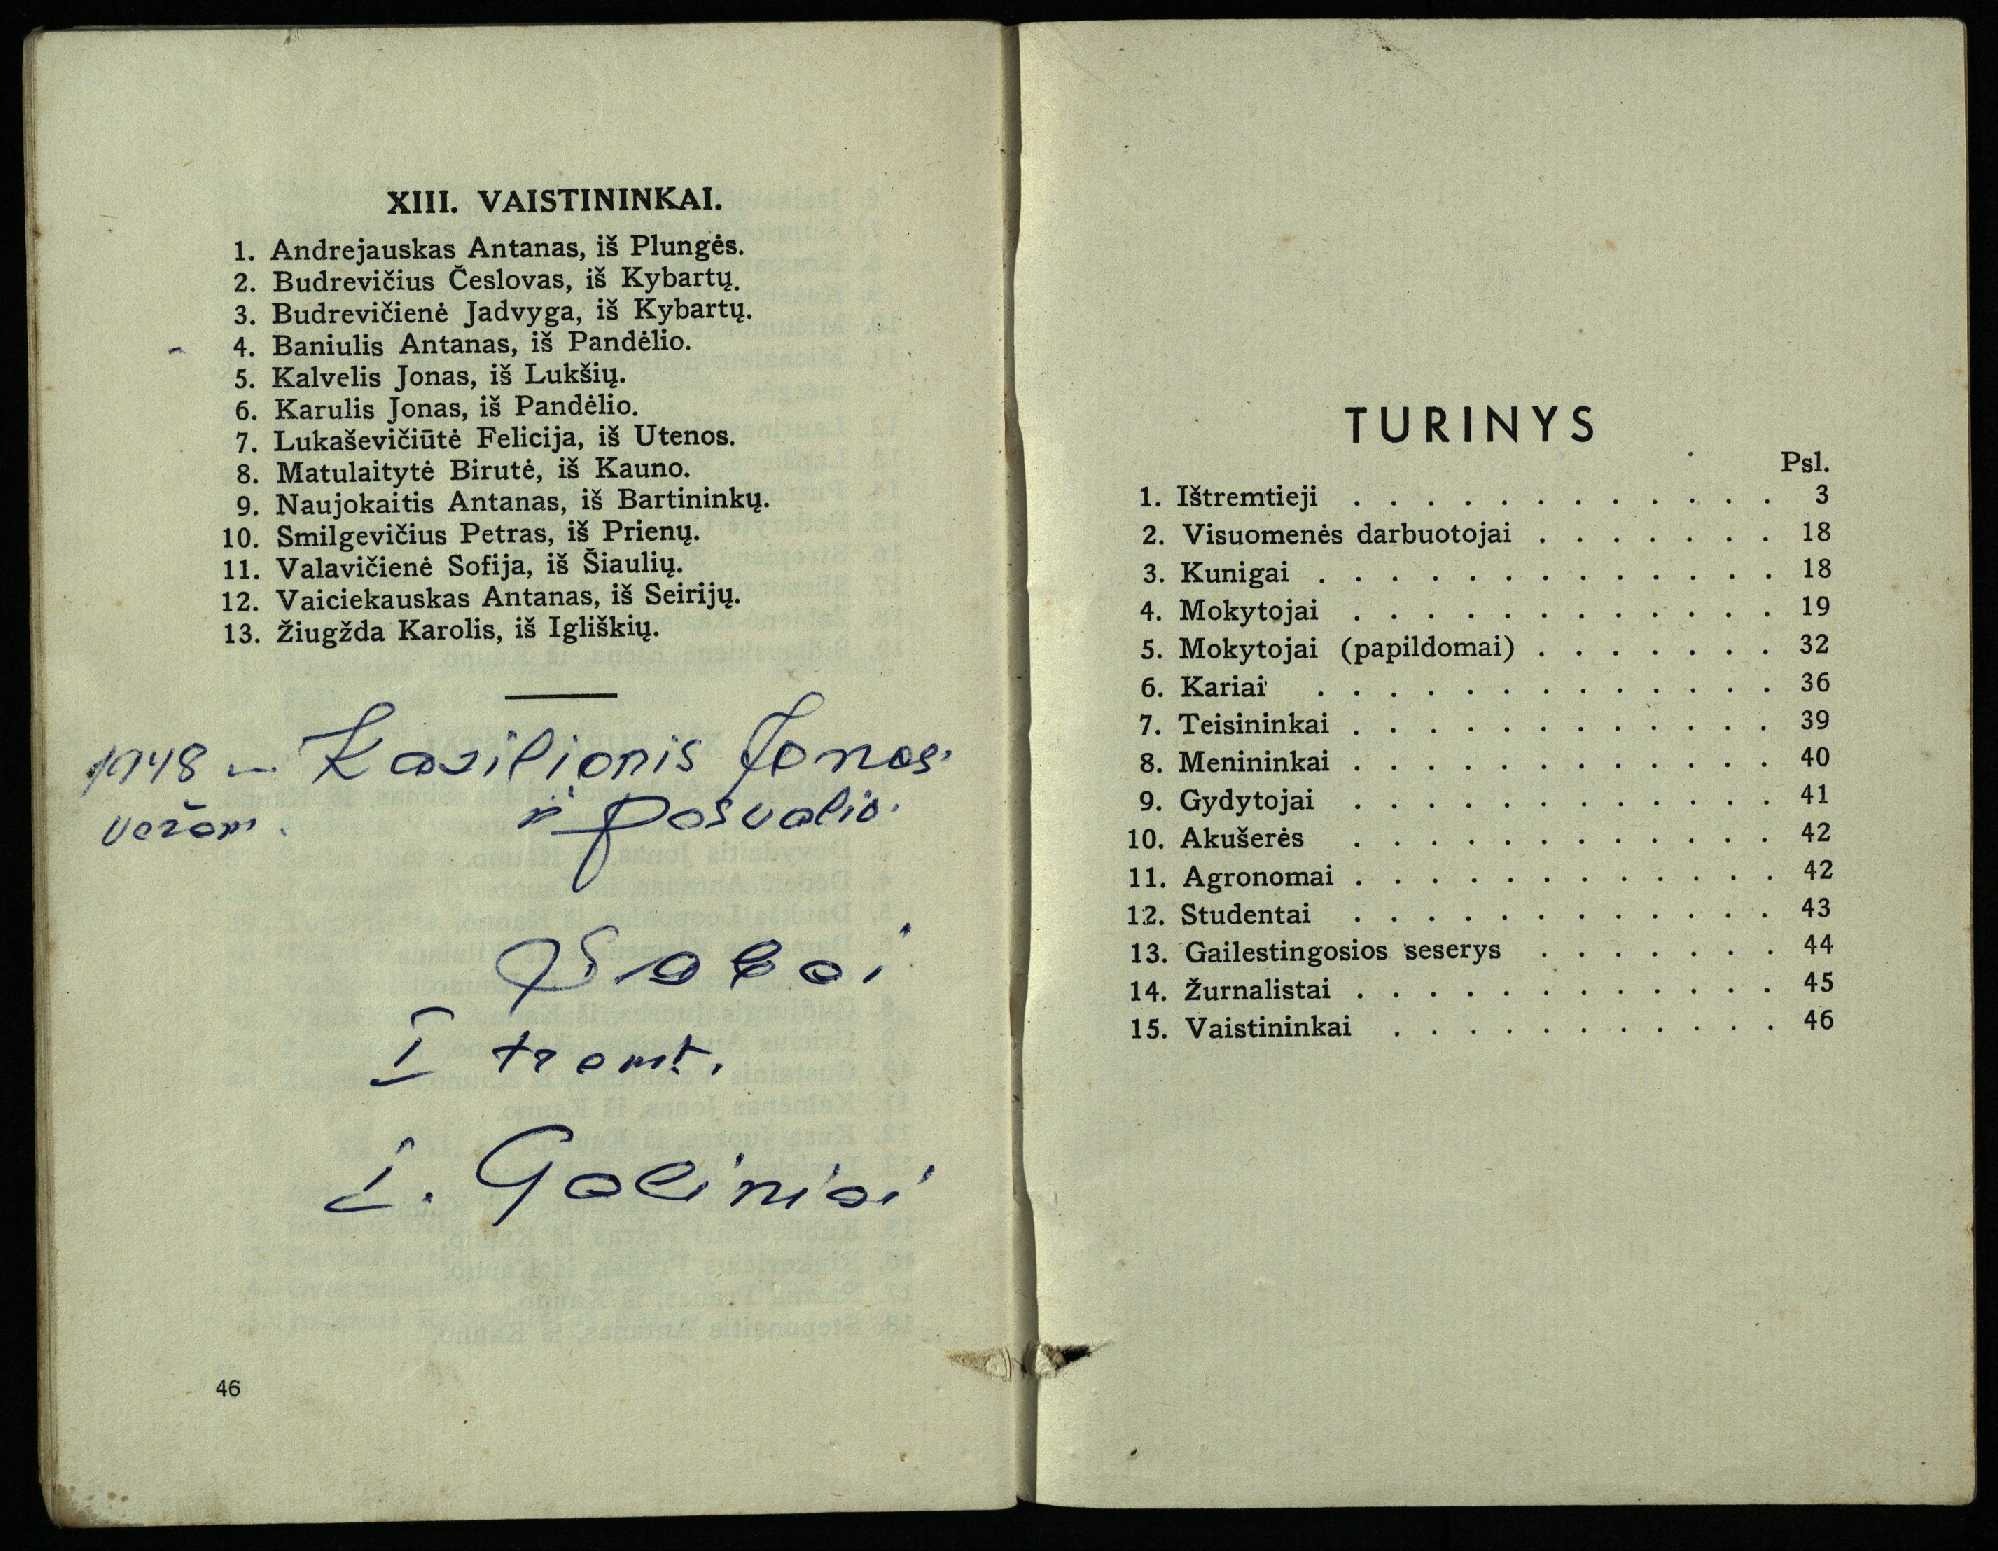 XIII. VAISTININKAI.
1. Andrejauskas Antanas, iš Plungės.
2. Budrevičius Česlovas, iš Kybartų.
3. Budrevičienė Jadvyga, iš Kybartų.
4. Baniulis Antanas, iš Pandėlio.
5. Kalvelis Jonas, iš Lukšių.
6. Karulis Jonas, iš Pandėlio.
7. Lukaševičiūtė Felicija, iš Utenos.
8. Matulaitytė Birutė, iš Kauno.
9. Naujokaitis Antanas, iš Bartininkų.
10. Smilgevičius Petras, iš Prienų.
11. Valavičienė Sofija, iš Šiaulių.
12. Vaiciekauskas Antanas, iš Seirijų.
13. Žiugžda Karolis, iš Igliškių.
1948 – Kazilionis Jonas.
Pasvalio.
I tremt.
I. Galiniai
46
TURINYS
Psl.
1. Ištremtieji . . . . . . . . . . . . 3
2. Visuomenės darbuotojai . . . . . . . 18
3. Kunigai . . . . . . . . . . . . . 18
4. Mokytojai . . . . . . . . . . . . 19
5. Mokytojai (papildomai) . . . . . . . 32
6. Kariai . . . . . . . . . . . . . 36
7. Teisininkai . . . . . . . . . . . . 39
8. Menininkai . . . . . . . . . . . . 40
9. Gydytojai . . . . . . . . . . . . 41
10. Akušerės . . . . . . . . . . . . 42
11. Agronomai . . . . . . . . . . . . 42
12. Studentai . . . . . . . . . . . . 43
13. Gailestingosios seserys . . . . . . . 44
14. Žurnalistai . . . . . . . . . . . . 45
15. Vaistininkai . . . . . . . . . . . 46